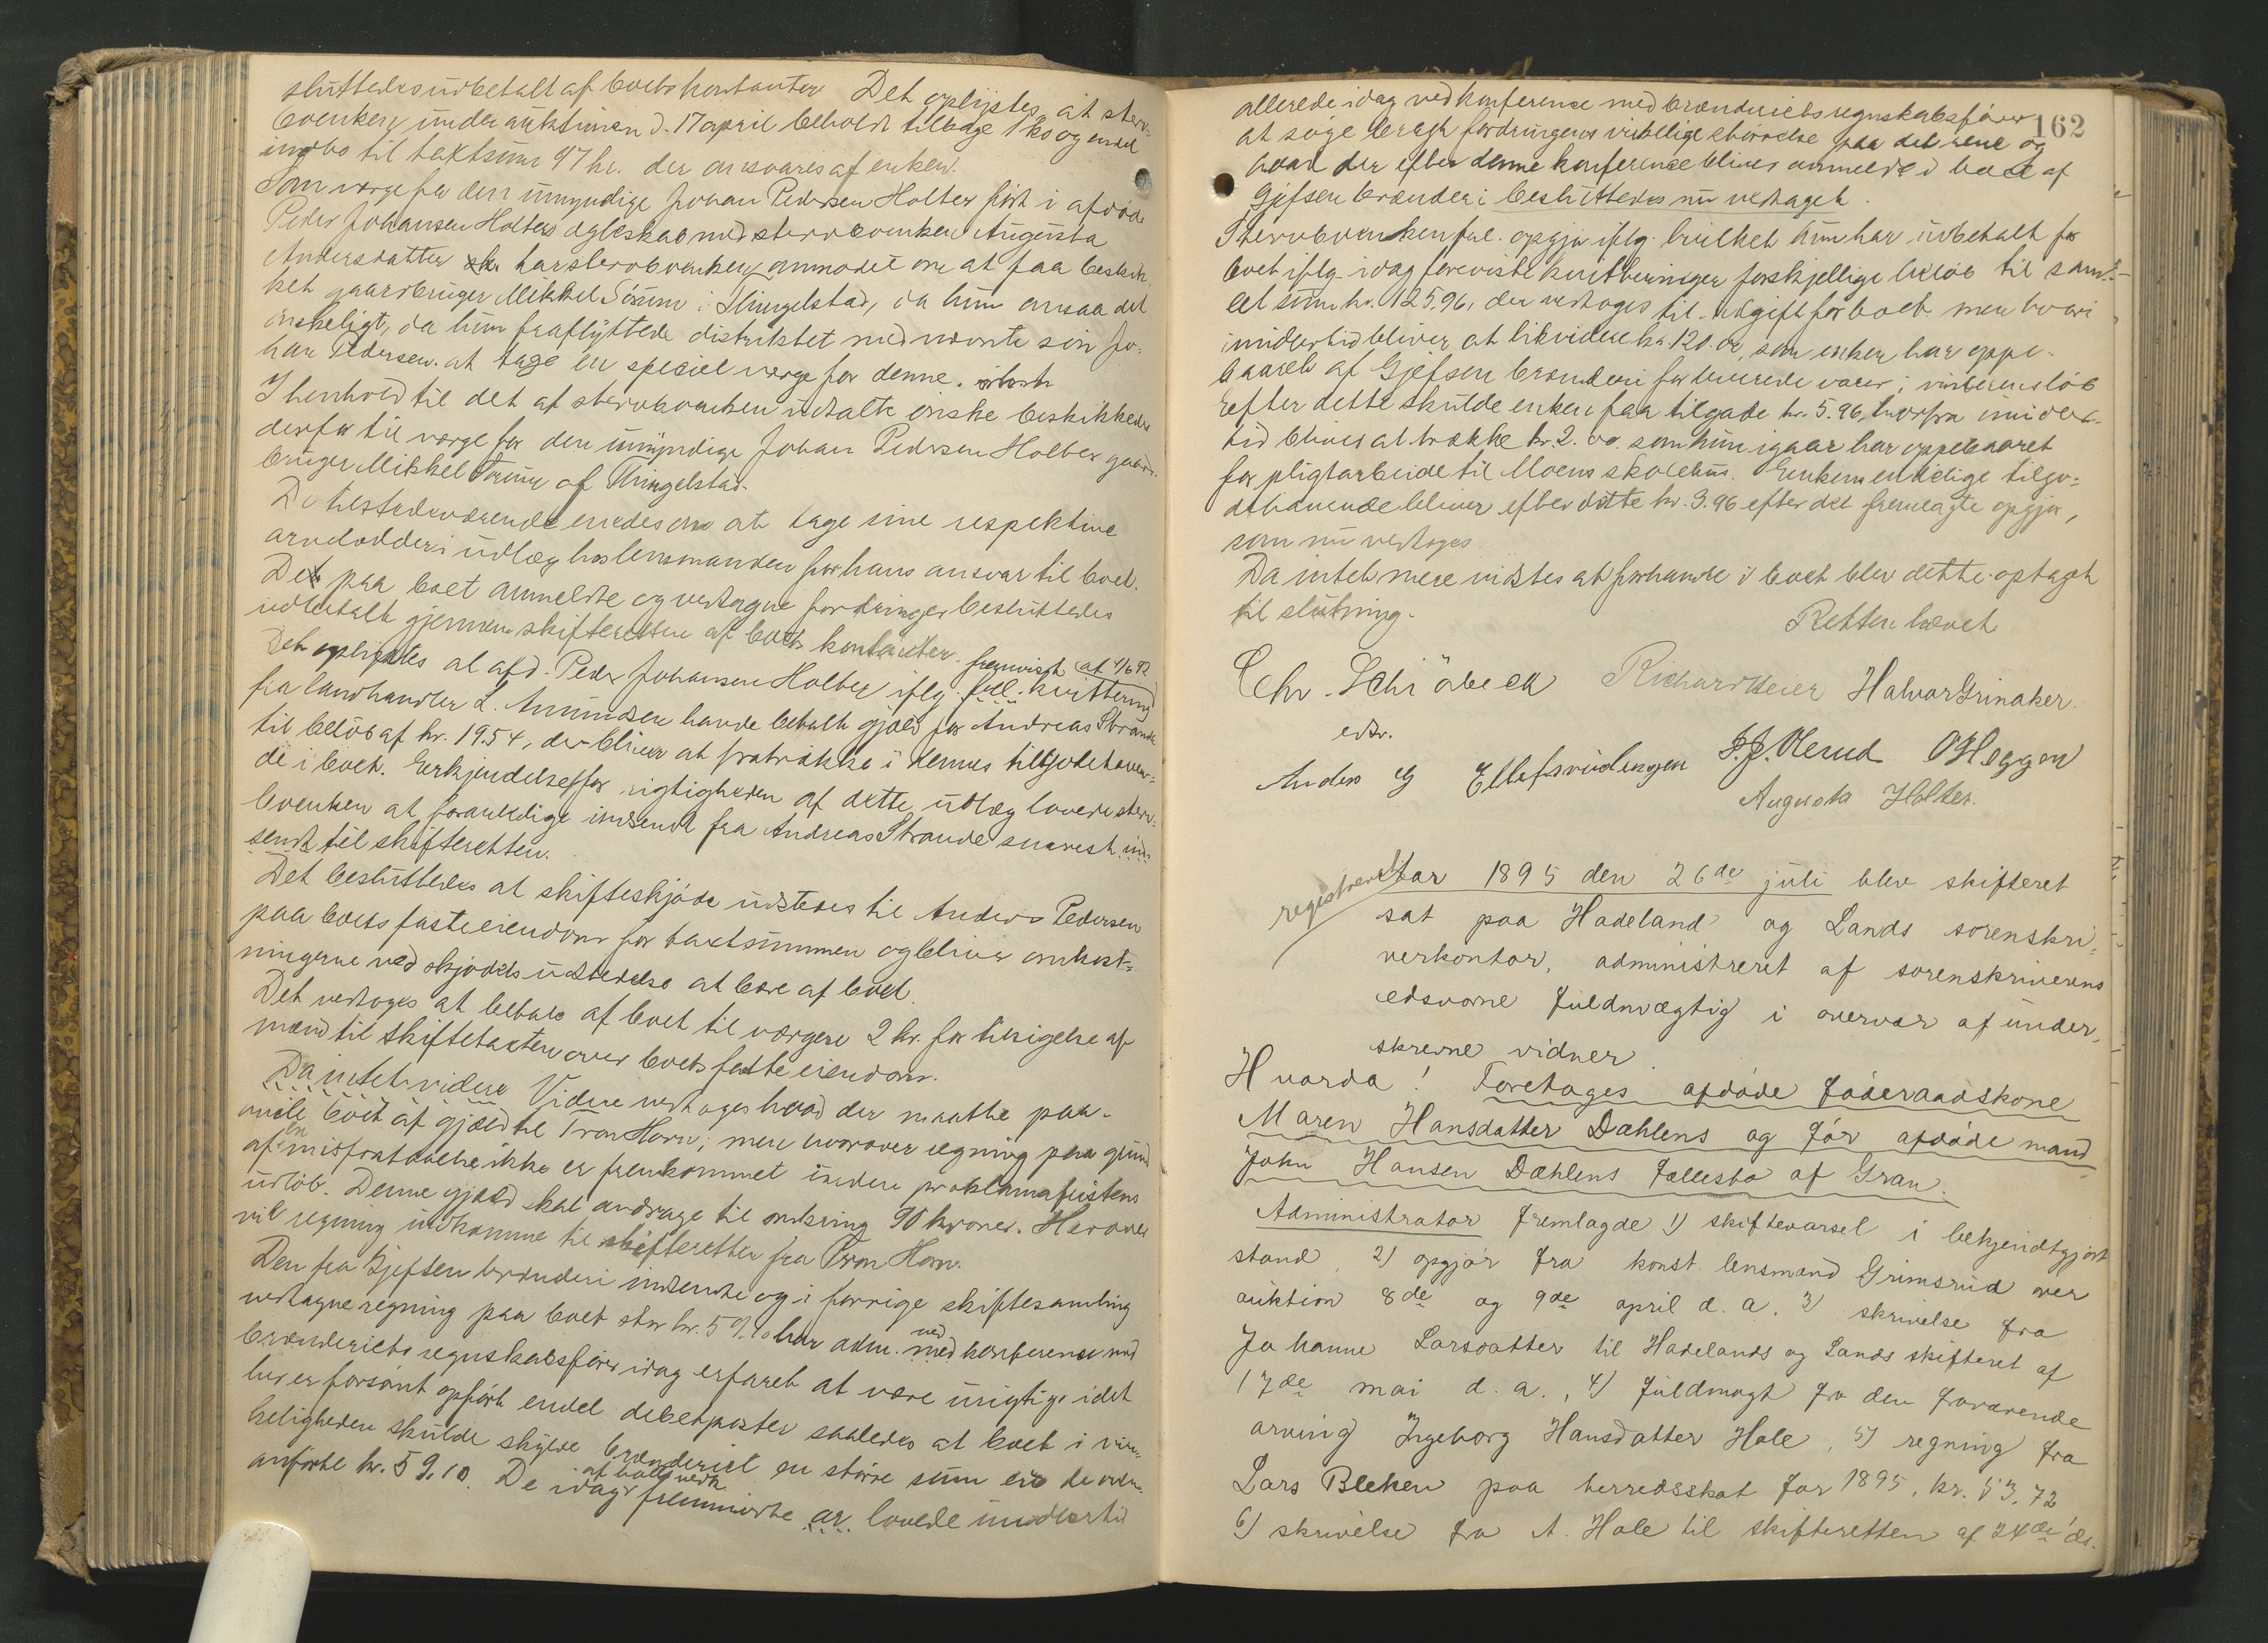 sluttedes udbetalt af boets kontanter. Det oplystes, at sterv-
boenken under auktionen d. 17 april beholdt tilbage 1 ko og endel
indbo til taktsum 97 kr. der ansvares af enken.
Som verge for den umyndige Johan Pedersen Holter født i afdøde
Peder Johansen Holters egteskab med stervboenken Augusta
Andersdatter har stervboenken anmodet om at faa beskik-
ket gaardbruger Mikkel Sørum i Thingelstad, da hun ansaa det
ønskeligt, da hun fraflyttede distriktet med nævnte søn Jo-
han Pedersen at tage en speciel verge for denne.
I henhold til det af stervboenken udtalte ønske beskikkedes
derfor til verge for den umyndige Johan Pedersen Holter gaard-
bruger Mikkel Sørum af Thingelstad.
De tilstedeværende enedes om at tage sine respektive
arvelodder i udlæg hos lensmanden for hans ansvar til boet.
De paa boet anmeldte og vedtagne fordringer besluttedes
udbetalt gjennem skifteretten af boets kontanter. fremvist af 4/6 92
Det oplystes at afd. Peder Johansen Holter iflg. frl. kvittering
fra landhandler L. Amundsen havde betalt gjæld for Andreas Strande
til beløb af kr. 19.54, der bliver at fratrække i dennes tilgodehaven-
de i boet. Erkjendelse for rigtigheden af dette udlæg lovede sterv-
boenken at foranledige indsendt fra Andreas Strande snarest ind-
sendt til skifteretten.
Det besluttedes at skifteskjøde udstedes til Anders Pedersen
paa boets faste eiendom for taxtsummen og bliver omkost-
ningerne ved skjødets udstedelse at bære af boet.
Det vedtoges at betale af boet til vergen 2 kr. for tilsigelse af
mænd til skiftetaxten over boets faste eiendom.
Da intet videre Videre vedtoges hvad der maatte paa-
hvile boet af gjæld til Tron Horn; men hvorover regning paa grund
af en misforstaaelse ikke er fremkommet inden proklamafristens
udløb. Denne gjæld skal andrage til omkring 90 kroner. Herover
vil regning indkomme til skifteretten fra Tron Horn.
Den fra Gjefsen brænderi indsendte og i forrige skiftesamling
vedtagne regning paa boet stor kr. 59.10 har adm. ved med konferense med
brænderiets regnskabsfører idag erfaret at være urigtig idet
her er forsømt opført endel debetposter saaledes at boet i virke-
keligheden skulde skylde brænderiet en større sum end de oven-
anførte kr. 59.10. De idag af boet vedk. fremmødte ar. lovede imidlertid
162
allerede idag ved konference med brænderiets regnskabsfører
at søge bragt fordringens virkelige størrelse paa det rene og
hvad der efter denne konference bliver anmeldt i boet af
Gjefsen brænderi besluttedes nu vedtaget.
Stervboenken frl. opgjør iflg. hvilket hun har udbetalt for
boet iflg. idag foreviste kvitteringer forskjellige beløb til sam-
let sum kr. 125.96, der vedtoges til udgift for boet men hvori
imidlertid bliver at likvidere kr. 120.00, som enken har oppe-
baaret af Gjefsen brænderi for leverede varer i vinterens løb
Efter dette skulde enken faa tilgode kr. 5.96, hvorfra imidler-
tid bliver at trække kr 2.00 som hun igaar har oppebaaret
for pligtarbeide til Moens skolehus. Enkens endelige tilgo-
dehavende bliver efter dette kr. 3.96 efter det fremlagte opgjør,
som nu vedtoges.
Da intet mere vidstes at forhandle i boet blev dette optaget
til slutning.
Retten hævet
Chr. Schiøbeck Richard Beier Halvor Grinaker.
edsv.
Anders G Ellefsrudengen P. J. Olerud O Heggen
Augusta Holter.
registreret
Aar 1895 den 26de juli blev skifteret
sat paa Hadeland og Lands sorenskri-
verkontor, administreret af sorenskriverens
edsvorne fuldmægtig i overvær af under-
skrevne vidner.
Hvorda! Foretages afdøde føderaadskone
Maren Hansdatter Dæhlens og før afdøde mand
John Hansen Dæhlens fællesbo af Gran.
Administrator fremlagde 1) skiftevarsel i bekjendtgjort
stand, 2) opgjør fra konst. lensmand Grimsrud over
auktion 8de og 9de april d. a. 3) skrivelse fra
Johanne Larsdatter til Hadelands og Lands skifteret af
17de mai d. a., 4) fuldmagt fra den fraværende
arving Ingeborg Hansdatter Hole, 5) regning fra
Lars Bleken paa herredsskat for 1895, kr. 53,72
6) skrivelse fra A. Hole til skifteretten af 24de ds.